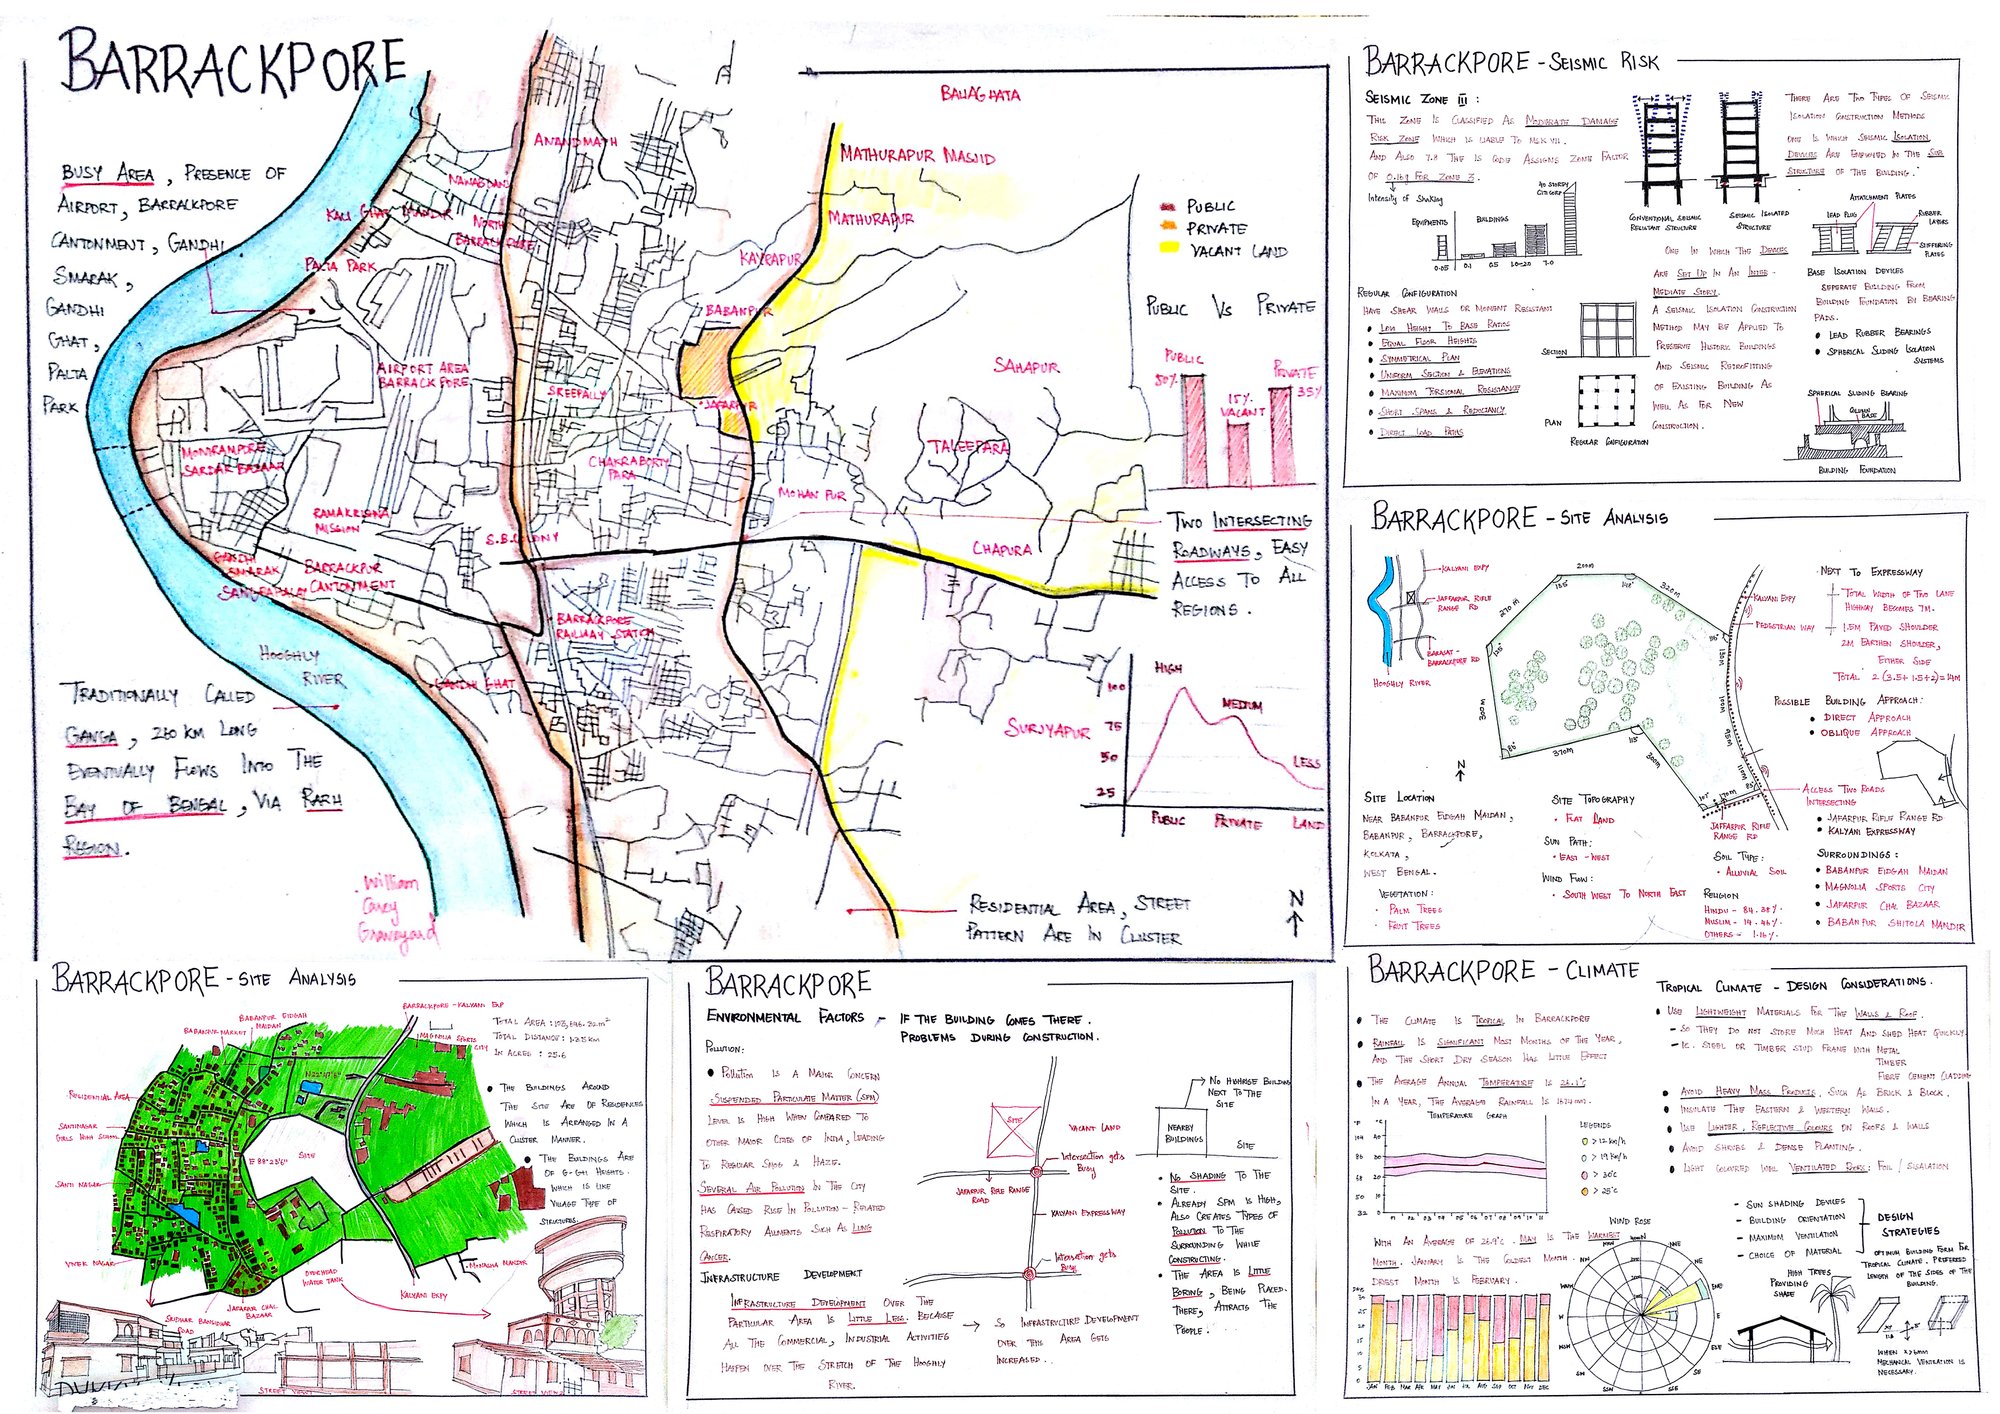 BARRACKPORE
BUSY AREA, PRESENCE OF
AIRPORT, BARRACKPORE
CANTONMENT, GANDHI
SMARAK,
GANDHI
GHAT,
PALTA
PARK
TRADITIONALLY CALLED
GANGA, 260 KM LONG
EVENTUALLY FLOWS INTO THE
BAY OF BENGAL, VIA RARH
REGION.
HOOGHLY
RIVER
William
Carey
Graveyard
ANANDMATH
NAWABGANJ
KALI GHAT MANDIR
NORTH
BARRACKPORE
PALTA PARK
AIRPORT AREA
BARRACKPORE
MONIRAMPORE
SARDAR BAZAAR
RAMAKRISHNA
MISSION
GANDHI
SMARAK
BARRACKPUR
CANTONMENT
S.B. COLONY
BARRACKPORE
RAILWAY STATION
GANDHI GHAT
SREEPALLY
CHAKRABORTY
PARA
BABANPUR
JAFARPUR
KAYRAPUR
MATHURAPUR
MATHURAPUR MASJID
MOHANPUR
SAHAPUR
TALEPARA
CHAPURA
SURJYAPUR
PUBLIC
PRIVATE
VACANT LAND
PUBLIC VS PRIVATE
PUBLIC
50%
15%
VACANT
PRIVATE
35%
TWO INTERSECTING
ROADWAYS, EASY
ACCESS TO ALL
REGIONS.
HIGH
MEDIUM
LESS
100
75
50
25
PUBLIC PRIVATE LAND
RESIDENTIAL AREA, STREET
PATTERN ARE IN CLUSTER
N
BARRACKPORE - SEISMIC RISK
SEISMIC ZONE III :
THIS ZONE IS CLASSIFIED AS MODERATE DAMAGE
RISK ZONE WHICH IS LIABLE TO MSK VII.
AND ALSO 7.8 THE IS CODE ASSIGNS ZONE FACTOR
OF 0.16 FOR ZONE 3.
Intensity of Shaking
EQUIPMENTS
BUILDINGS
40 STOREY
CITICORP
0.05 0.1 0.5 1.0-2.0 7.0
REGULAR CONFIGURATION
HAVE SHEAR WALLS OR MOMENT RESISTANT
LOW HEIGHT TO BASE RATIOS
EQUAL FLOOR HEIGHTS
SYMMETRICAL PLAN
UNIFORM SECTION & ELEVATIONS
MAXIMUM TORSIONAL RESISTANCE
SHORT SPANS & REDUNDANCY
DIRECT LOAD PATHS
SECTION
PLAN
REGULAR CONFIGURATION
CONVENTIONAL SEISMIC
RESISTANT STRUCTURE
SEISMIC ISOLATED
STRUCTURE
THERE ARE TWO TYPES OF SEISMIC
ISOLATION CONSTRUCTION METHODS
ONE IS WHICH SEISMIC ISOLATION
DEVICES ARE EMPLOYED IN THE SUB
STRUCTURE OF THE BUILDING.
ATTACHMENT PLATES
LEAD PLUG
RUBBER
LAYERS
STIFFENING
PLATES
ONE IN WHICH THE DEVICES
ARE SET UP IN AN INTER-
MEDIATE STORY.
A SEISMIC ISOLATION CONSTRUCTION
METHOD MAY BE APPLIED TO
PRESERVE HISTORIC BUILDINGS
AND SEISMIC RETROFITTING
OF EXISTING BUILDING AS
WELL AS FOR NEW
CONSTRUCTION.
BASE ISOLATION DEVICES
SEPERATE BUILDING FROM
BUILDING FOUNDATION BY BEARING
PADS.
LEAD RUBBER BEARINGS
SPHERICAL SLIDING ISOLATION
SYSTEMS
SPHERICAL SLIDING BEARING
COLUMN
BASE
BUILDING FOUNDATION
BARRACKPORE - SITE ANALYSIS
KALYANI EXPY
JAFFARPUR RIFLE
RANGE RD
BARASAT -
BARRACKPORE RD
HOOGHLY RIVER
200m
320m
270 m
300 m
370m
300m
KALYANI EXPY
PEDESTRIAN WAY
JAFFARPUR RIFLE
RANGE RD
N
NEXT TO EXPRESSWAY
TOTAL WIDTH OF TWO LANE
HIGHWAY BECOMES 7M.
1.5M PAVED SHOULDER
2M EARTHEN SHOULDER,
EITHER SIDE
TOTAL 2 (3.5+1.5+2) = 14M
POSSIBLE BUILDING APPROACH:
DIRECT APPROACH
OBLIQUE APPROACH
ACCESS TWO ROADS
INTERSECTING
JAFARPUR RIFLE RANGE RD
KALYANI EXPRESSWAY
SURROUNDINGS :
BABANPUR EIDGAH MAIDAN
MAGNOLIA SPORTS CITY
JAFARPUR CHAL BAZAAR
BABANPUR SHITOLA MANDIR
SITE LOCATION
NEAR BABANPUR EIDGAH MAIDAN,
BABANPUR, BARRACKPORE,
KOLKATA,
WEST BENGAL.
VEGETATION :
PALM TREES
FRUIT TREES
SITE TOPOGRAPHY
FLAT LAND
SUN PATH:
EAST-WEST
WIND FLOW:
SOUTH WEST TO NORTH EAST
SOIL TYPE:
ALLUVIAL SOIL
RELIGION
HINDU - 84.38%
MUSLIM - 14.46%
OTHERS - 1.16%
BARRACKPORE - SITE ANALYSIS
BARRACKPORE - KALYANI EXP
BABANPUR EIDGAH
MAIDAN
BABANPUR MARKET
MAGNOLIA SPORTS
CITY
RESIDENTIAL AREA
SANTINAGAR
GIRLS HIGH SCHOOL
SANTI NAGAR
VIVEK NAGAR
SITE
OVERHEAD
WATER TANK
KALYANI EXPY
JAFARPUR CHAL
BAZAAR
SRIDHAR BANSIDHAR
ROAD
MONALISA MANDIR
IN ACRES : 25.6
THE BUILDINGS AROUND
THE SITE ARE OF RESIDENCES
WHICH IS ARRANGED IN A
CLUSTER MANNER.
THE BUILDINGS ARE
OF G-G+1 HEIGHTS.
WHICH IS LIKE
VILLAGE TYPE OF
STRUCTURES.
STREET VIEW
STREET VIEW
BARRACKPORE
ENVIRONMENTAL FACTORS - IF THE BUILDING COMES THERE.
PROBLEMS DURING CONSTRUCTION.
POLLUTION:
POLLUTION IS A MAJOR CONCERN
SUSPENDED PARTICULATE MATTER (SPM)
LEVEL IS HIGH WHEN COMPARED TO
OTHER MAJOR CITIES OF INDIA, LEADING
TO REGULAR SMOG & HAZE.
SEVERAL AIR POLLUTION IN THE CITY
HAS CAUSED RISE IN POLLUTION-RELATED
RESPIRATORY AILMENTS SUCH AS LUNG
CANCER.
INFRASTRUCTURE DEVELOPMENT
INFRASTRUCTURE DEVELOPMENT OVER THE
PARTICULAR AREA IS LITTLE LESS. BECAUSE
ALL THE COMMERCIAL, INDUSTRIAL ACTIVITIES
HAPPEN OVER THE STRETCH OF THE HOOGHLY
RIVER.
SO INFRASTRUCTURE DEVELOPMENT
OVER THIS AREA GETS
INCREASED..
SITE
VACANT LAND
Intersection gets
Busy
JAFARPUR RIFLE RANGE
ROAD
KALYANI EXPRESSWAY
Intersection gets
Busy
NO HIGHRISE BUILDING
NEXT TO THE
SITE
NEARBY
BUILDINGS
SITE
NO SHADING TO THE
SITE.
ALREADY SPM IS HIGH,
ALSO CREATES TYPES OF
POLLUTION TO THE
SURROUNDING WHILE
CONSTRUCTING.
THE AREA IS LITTLE
BORING, BEING PLACED
THERE, ATTRACTS THE
PEOPLE.
BARRACKPORE - CLIMATE
THE CLIMATE IS TROPICAL IN BARRACKPORE
RAINFALL IS SIGNIFICANT MOST MONTHS OF THE YEAR,
AND THE SHORT DRY SEASON HAS LITTLE EFFECT
THE AVERAGE ANNUAL TEMPERATURE IS 26.1°C
IN A YEAR, THE AVERAGE RAINFALL IS 1624 mm.
TEMPERATURE GRAPH
°F °C
LEGENDS
> 12 km/h
> 19 km/h
> 30°C
> 25°C
WITH AN AVERAGE OF 26.9°C. MAY IS THE WARMEST
MONTH. JANUARY IS THE COLDEST MONTH.
DRIEST MONTH IS FEBRUARY.
WIND ROSE
JAN FEB MAR APR MAY JUN JUL AUG SEP OCT NOV DEC
TROPICAL CLIMATE - DESIGN CONSIDERATIONS.
USE LIGHTWEIGHT MATERIALS FOR THE WALLS & ROOF.
- SO THEY DO NOT STORE MUCH HEAT AND SHED HEAT QUICKLY.
- IE. STEEL OR TIMBER STUD FRAME WITH METAL
TIMBER
FIBRE CEMENT CLADDING
AVOID HEAVY MASS PRODUCTS, SUCH AS BRICK & BLOCK.
INSULATE THE EASTERN & WESTERN WALLS.
USE LIGHTER, REFLECTIVE COLOURS ON ROOFS & WALLS
AVOID SHRUBS & DENSE PLANTING.
LIGHT COLOURED WELL VENTILATED ROOFS: FOIL / SISALATION
- SUN SHADING DEVICES
- BUILDING ORIENTATION
- MAXIMUM VENTILATION
- CHOICE OF MATERIAL
DESIGN
STRATEGIES
HIGH TREES
PROVIDING
SHADE
OPTIMUM BUILDING FORM FOR
TROPICAL CLIMATE. PREFERRED
LENGTH OF THE SIDES OF THE
BUILDING.
MECHANICAL VENTILATION IS
NECESSARY.